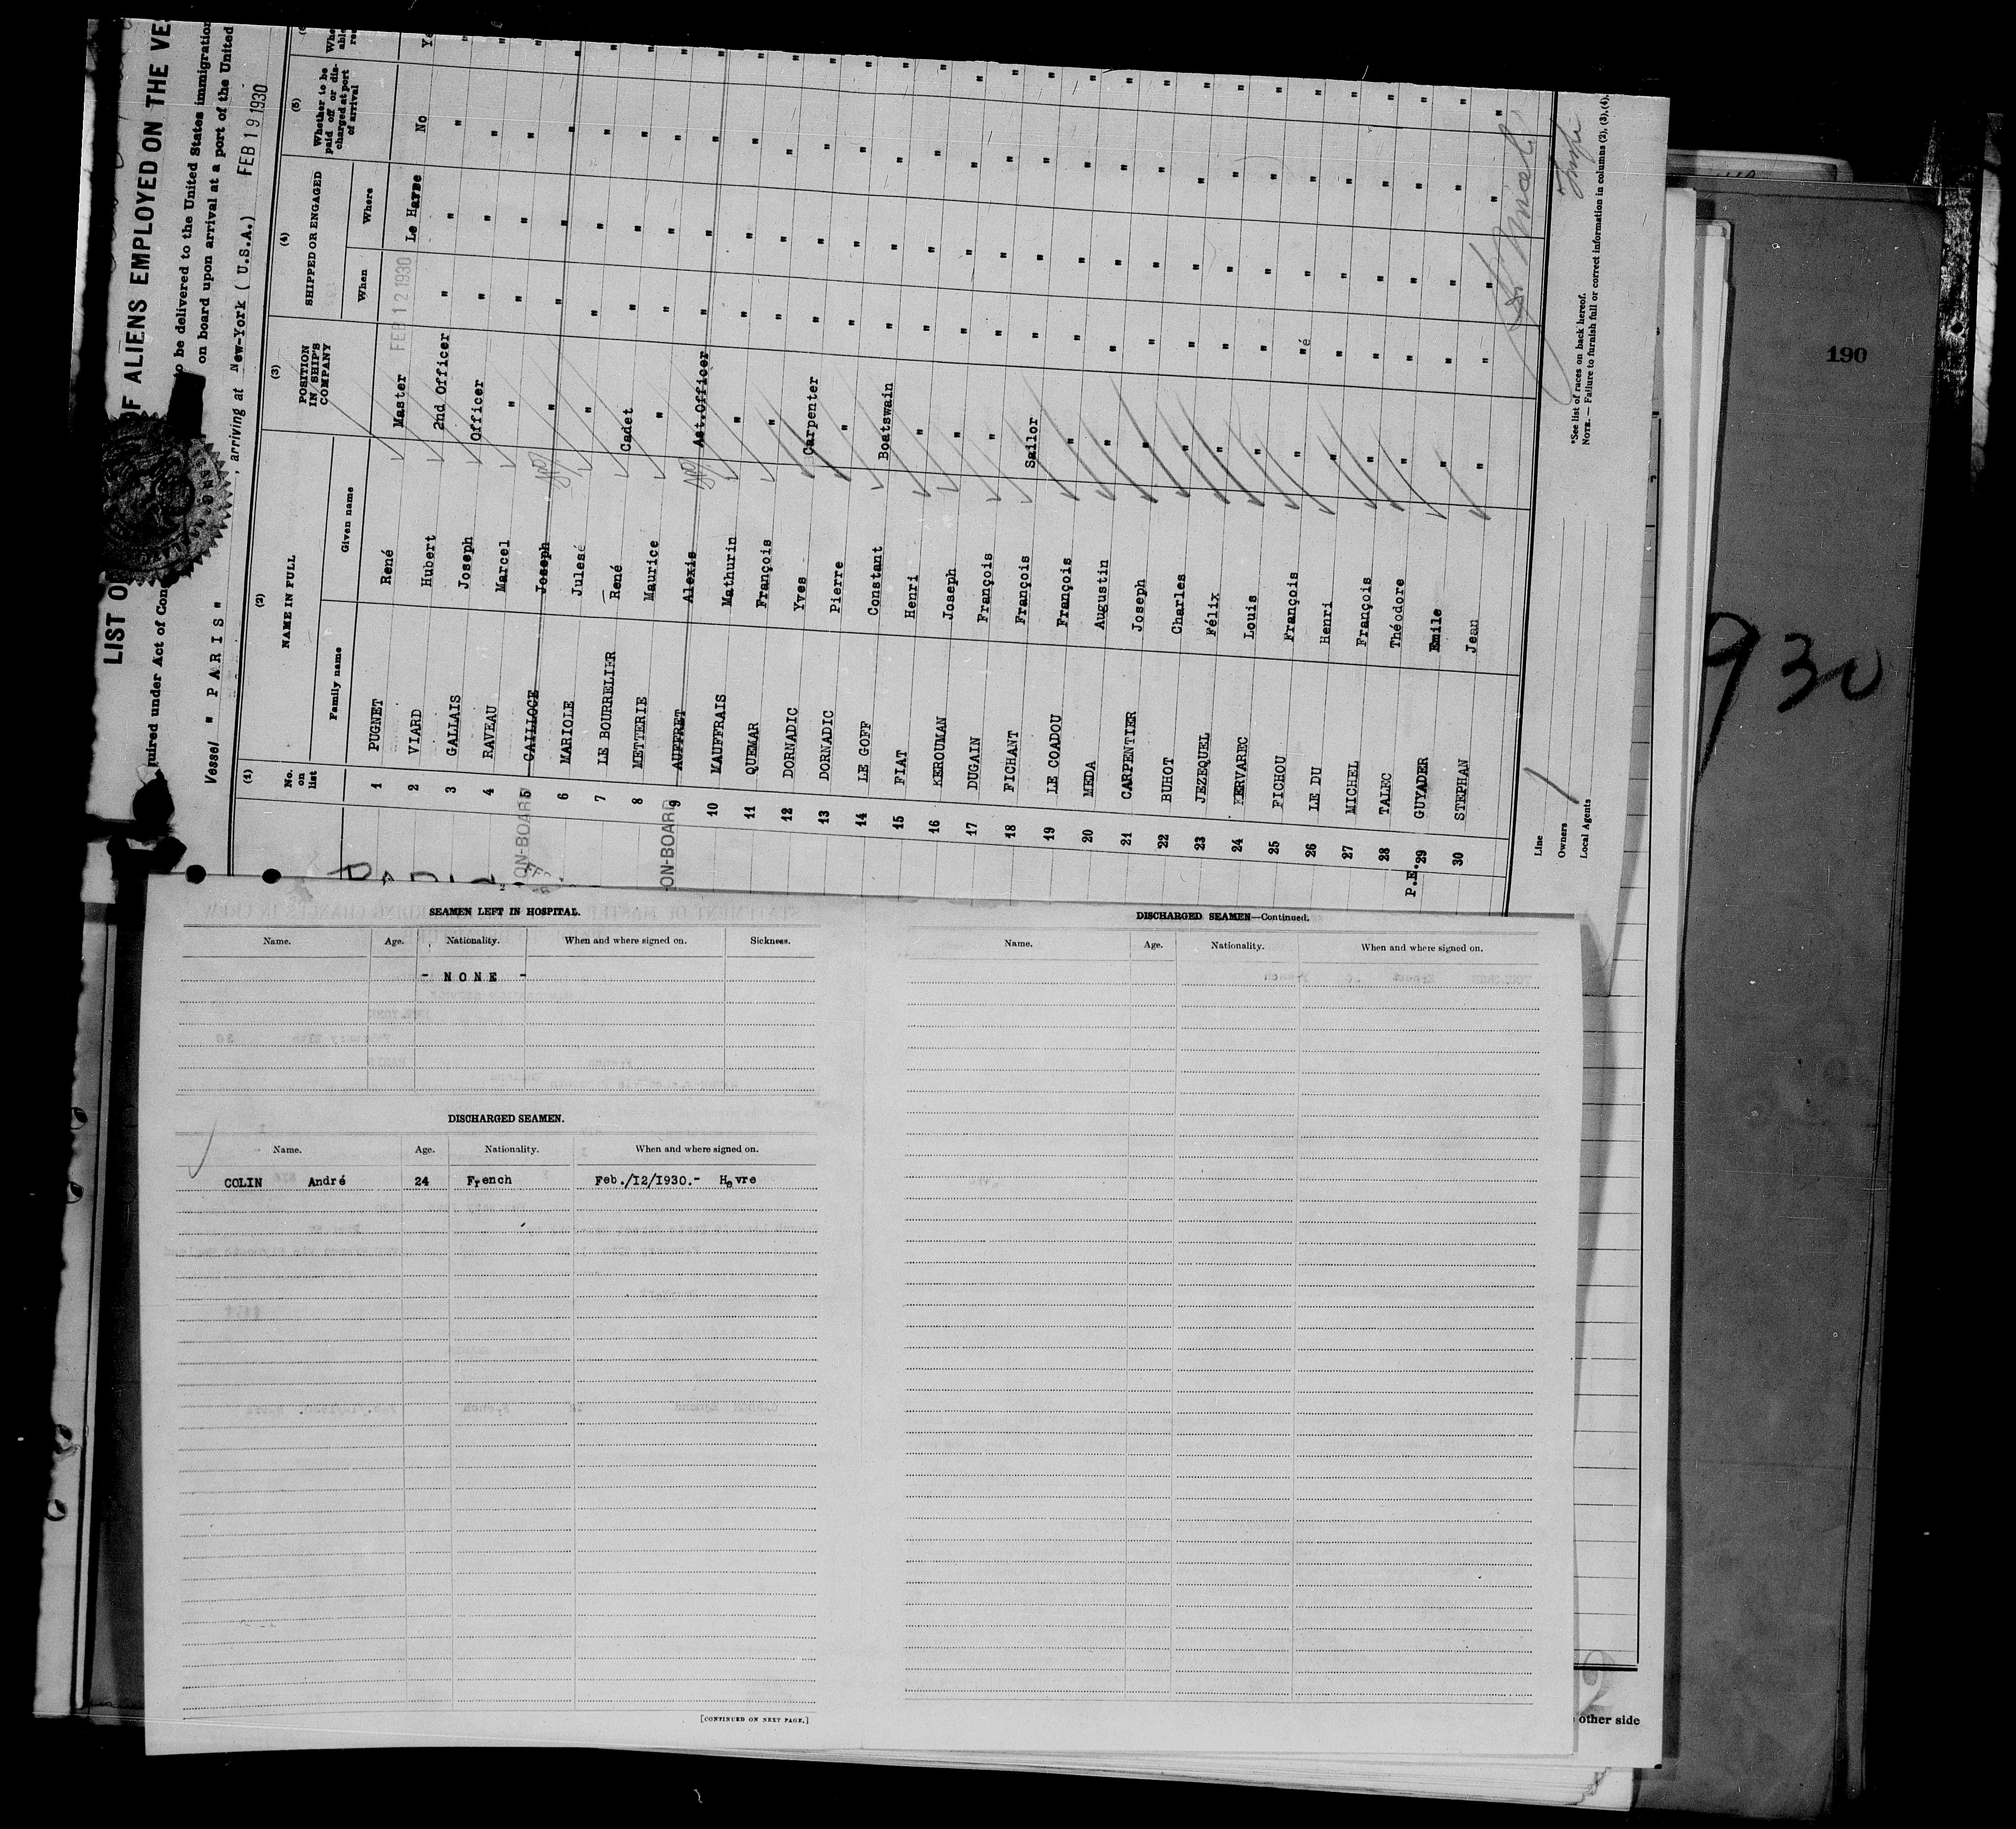 LIST O
OF ALIENS EMPLOYED ON THE VE
quired under Act of Cong
to be delivered to the United States immigration
on board upon arrival at a port of the United
Vessel " PARIS " , arriving at New-York ( U.S.A.) FEB 19 1930
(1) (2) (3) (4) (5)
No. on list NAME IN FULL POSITION IN SHIP'S COMPANY SHIPPED OR ENGAGED Whether to be paid off or discharged at port of arrival
Family name Given name When Where
1 PUGNET René Master FEB 12 1930 Le Havre No
2 VIARD Hubert 2nd Officer " " "
3 GALLAIS Joseph Officer " " "
4 RAVEAU Marcel " " " "
ON-BOARD 5 CAILLOCE Joseph " " " "
6 MARIOLE Julesé " " " "
7 LE BOURRELIER René Cadet " " "
8 METTERIE Maurice " " " "
ON-BOARD 9 AUFFRET Alexis Ast.Officer " " "
10 MAUFFRAIS Mathurin " " " "
11 QUEMAR François " " " "
12 DORNADIC Yves Carpenter " " "
13 DORNADIC Pierre " " " "
14 LE GOFF Constant Boatswain " " "
15 FIAT Henri " " " "
16 KEROUMAN Joseph " " " "
17 DUGAIN François " " " "
18 FICHANT François Sailor " " "
19 LE COADOU François " " " "
20 MEDA Augustin " " " "
21 CARPENTIER Joseph " " " "
22 BUHOT Charles " " " "
23 JEZEQUEL Félix " " " "
24 KERVAREC Louis " " " "
25 PICHOU François " " " "
26 LE DU Henri " " " "
27 MICHEL François " " " "
28 TALEC Théodore " " " "
P.E. 29 GUYADER Emile " " " "
30 STEPHAN Jean " " " "
Line
Owners
Local Agents
*See list of races on back hereof.
NOTE.—Failure to furnish full or correct information in columns (2), (3), (4),
190
930
SEAMEN LEFT IN HOSPITAL.
Name. Age. Nationality. When and where signed on. Sickness.
- NONE -
DISCHARGED SEAMEN.
Name. Age. Nationality. When and where signed on.
COLIN André 24 French Feb./12/1930.- Havre
[CONTINUED ON NEXT PAGE.]
DISCHARGED SEAMEN—Continued.
Name. Age. Nationality. When and where signed on.
other side